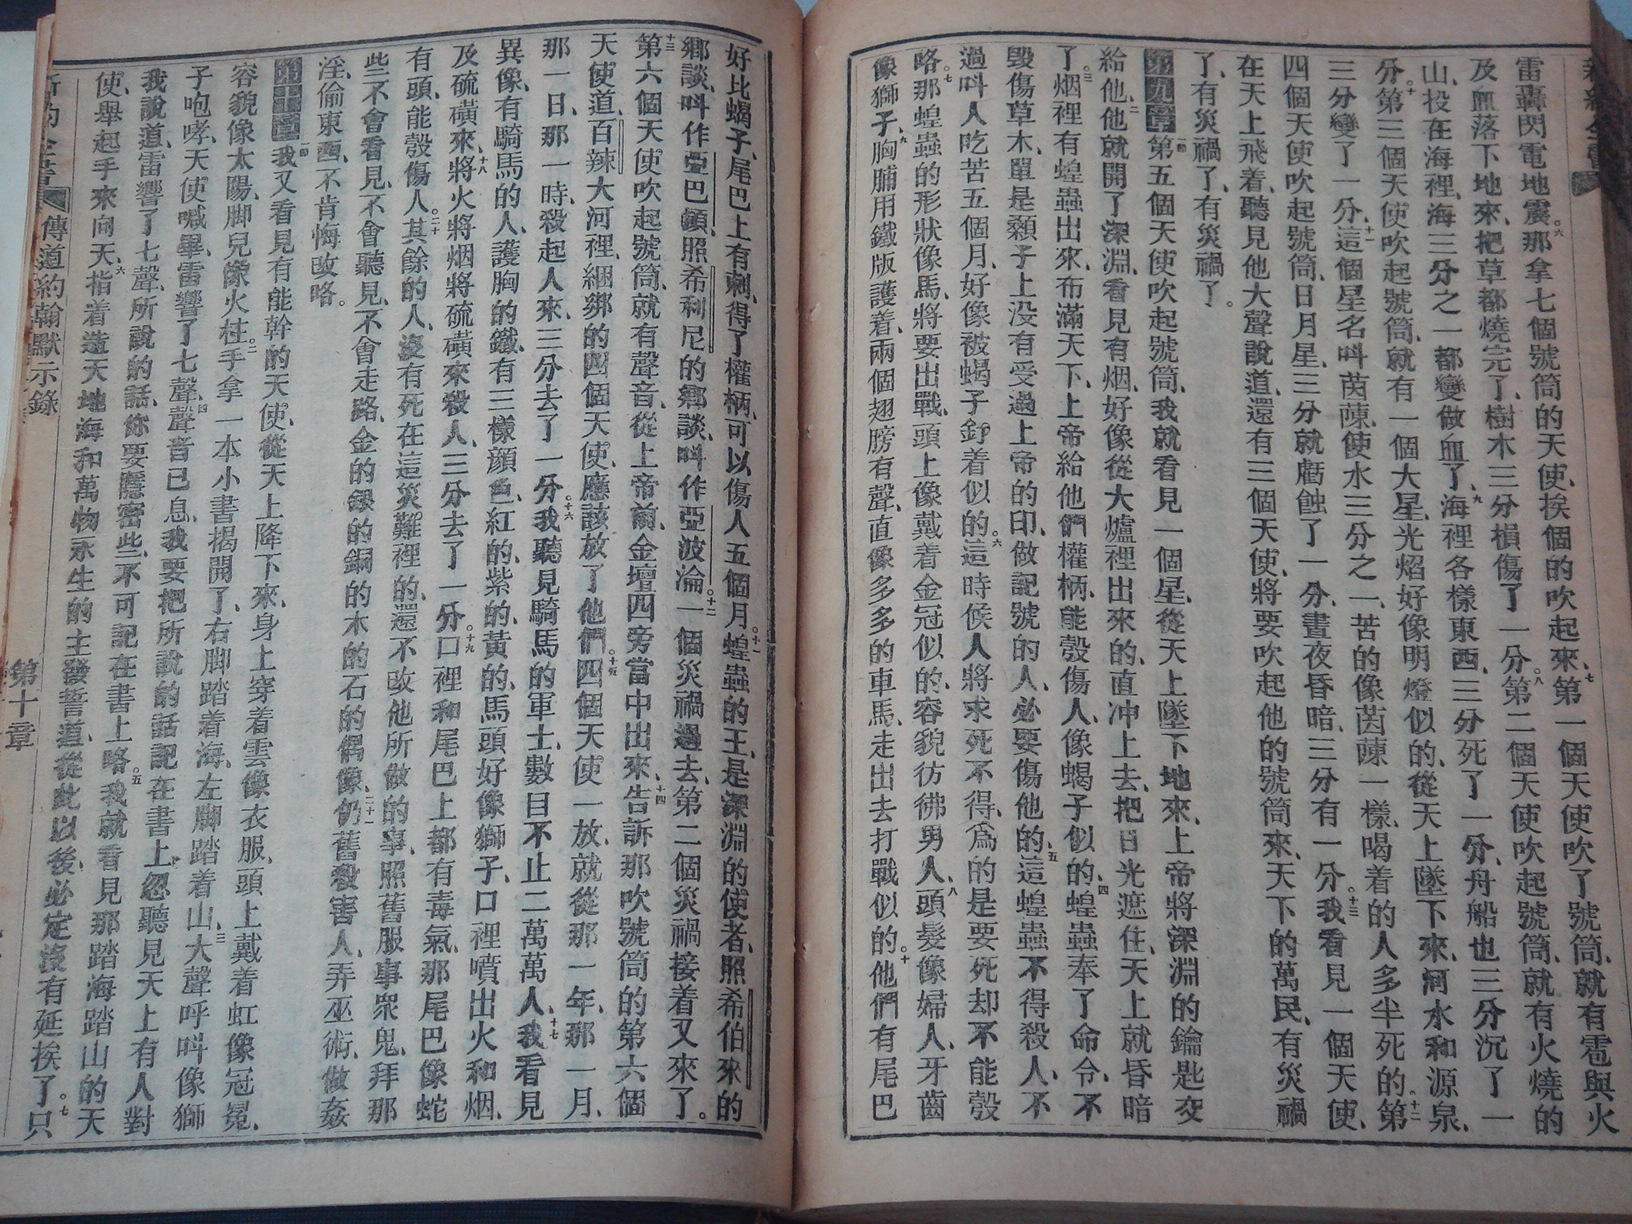 雷轟閃電地震、那拿七個號筒的天使、挨個的吹起來、第一個天使吹了號筒、就有雹與火
及血落下地來、把草都燒完了、樹木三分損傷了一分。第二個天使吹起號筒、就有火燒的
山、投在海裡、海三分之一都變做血了、海裡各樣東西、三分死了一分、舟船也三分沉了一
分。第三個天使吹起號筒、就有一個大星、光熖好像明燈似的、從天上墜下來、河水和源泉、
三分變了一分、這個星名呌茵蔯、使水三分之一、苦的像茵蔯一樣、喝着的人多半死的。第
四個天使吹起號筒、日月星、三分就虧蝕了一分、晝夜昏暗、三分有一分。我看見一個天使、
在天上飛着、聽見他大聲說道、還有三個天使、將要吹起他的號筒來、天下的萬民、有災禍
了、有災禍了、有災禍了。
第九章 第五個天使吹起號筒、我就看見一個星、從天上墜下地來、上帝將深淵的鑰匙交
給他、他就開了深淵、看見有烟、好像從大爐裡出來的、直冲上去、把日光遮住、天上就昏暗
了。烟裡有蝗蟲出來、布滿天下、上帝給他們權柄、能彀傷人、像蝎子似的、蝗蟲奉了命令、不
毀傷草木、單是額子上没有受過上帝的印、做記號的人、必要傷他的、這蝗蟲不得殺人、不
過呌人吃苦五個月、好像被蝎子釾着似的、這時候人將求死不得、爲的是要死却不能彀
略。那蝗蟲的形狀像馬、將要出戰、頭上像戴着金冠似的、容貌彷彿男人、頭髮像婦人、牙齒
像獅子、胸脯用鐵版護着、兩個翅膀有聲、直像多多的車馬、走出去打戰似的。他們有尾巴
好比蝎子、尾巴上有刺、得了權柄、可以傷人五個月。蝗蟲的王、是深淵的使者、照希伯來的
鄉談、呌作亞巴頓、照希利尼的鄉談、呌作亞波淪。一個災禍過去、第二個災禍接着又來了。
第六個天使吹起號筒、就有聲音、從上帝前、金壇四旁當中出來、告訴那吹號筒的第六個
天使道、百辣大河裡、綑綁的四個天使、應該放了他們。四個天使一放、就從那一年、那一月、
那一日、那一時、殺起人來、三分去了一分。我聽見騎馬的軍士、數目不止二萬萬人、我看見
異像、有騎馬的人、護胸的鐵、有三樣顔色、紅的、紫的、黃的、馬頭好像獅子、口裡噴出火和烟、
及硫磺來、將火將烟將硫磺來殺人、三分去了一分。口裡和尾巴上都有毒氣、那尾巴像蛇
有頭、能彀傷人。其餘的人、沒有死在這災難裡的、還不改他所做的事、照舊服事衆鬼、拜那
些不會看見、不會聽見、不會走路、金的銀的銅的木的石的偶像、仍舊殺害人、弄巫術、做姦
淫、偷東西、不肯悔改略。
第十章 我又看見有能幹的天使、從天上降下來、身上穿着雲像衣服、頭上戴着虹像冠冕、
容貌像太陽、脚兒像火柱。手拿一本小書揭開了、右脚踏着海、左脚踏着山。大聲呼呌像獅
子咆哮、天使喊畢、雷響了七聲。聲音已息、我要把所說的話、記在書上、忽聽見天上有人對
我說道、雷響了七聲、所說的話、你要隱密些、不可記在書上略。我就看見那踏海踏山的天
使、舉起手來向天。指着造天地海和萬物永生的主發誓道、從此以後、必定沒有延挨了。只
傳道約翰默示錄
第十章